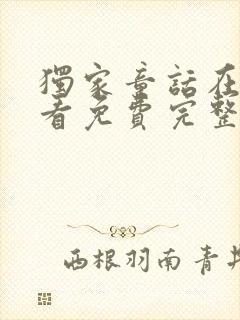 獨家童話在
看免費完整
西根羽南青